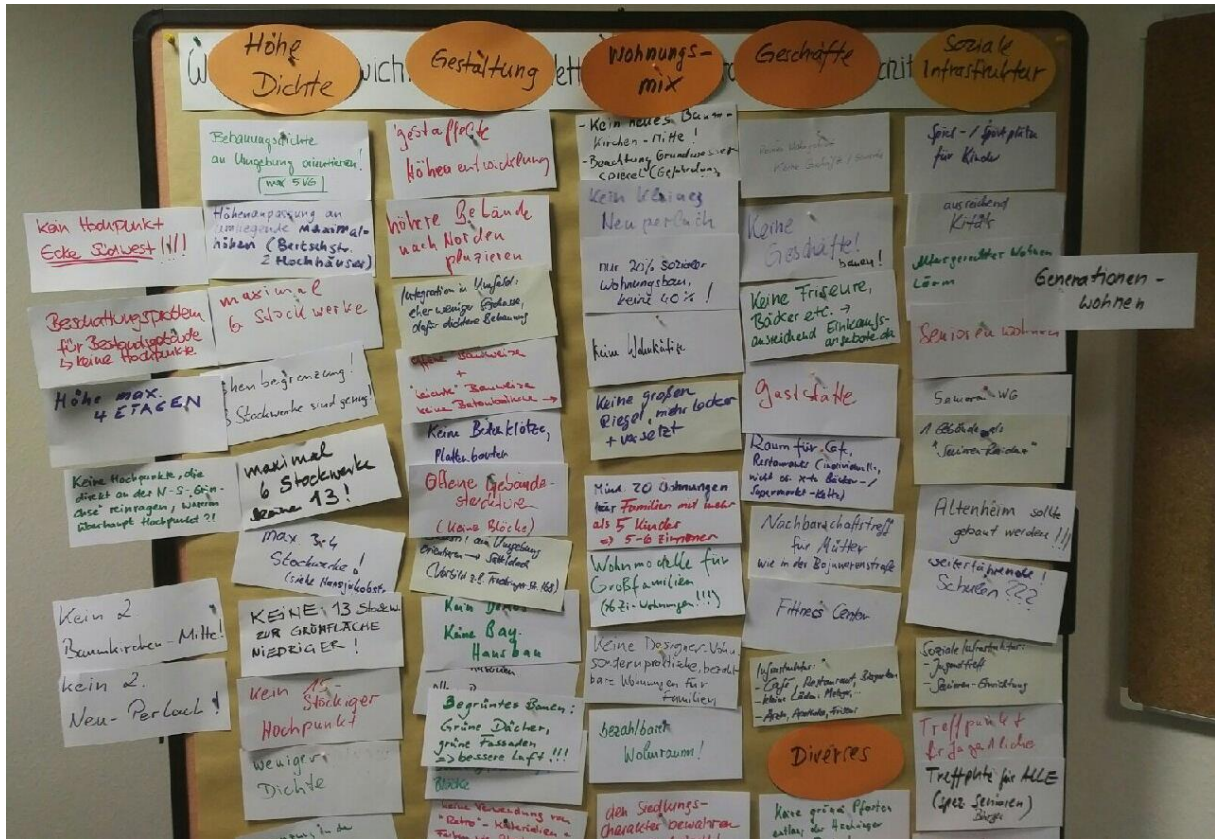 Höhe
Dichte
Gestaltung
Wohnungs-
mix
Geschäfte
Soziale
Infrastruktur
kein Hochpunkt
Ecke Südwest !!!!
Beschattungsproblem
für Bestandsgebäude
↳ keine Hochpunkte
Höhe max.
4 ETAGEN
Keine Hochpunkte, die
direkt an der N-S-
reinragen, warum
überhaupt Hochpunkt ?!
Kein 2
Baumkirchen-Mitte!
Kein 2.
Neu-Perlach!
Bebauungsdichte
an Umgebung orientieren!
max 5 VG
Höhenanpassung an
umliegende Maximal-
höhen (Bertschstr.
2 Hochhäuser)
maximal
6 Stockwerke
henbegrenzung!
Stockwerke sind genug!
maximal
6 Stockwerke
keine 13!
max 3-4
Stockwerke!
(siehe
KEINE 13 Stockw.
ZUR GRÜNFLÄCHE
NIEDRIGER!
Kein 15-
Stöckiger
Hochpunkt
weniger
Dichte
gestaffelte
Höhenentwicklung
höhere Gebäude
nach Norden
plazieren
Integration in Umfeld:
eher weniger Geschosse,
dafür dichtere Bebauung
offene Bauweise
+
"leichte" Bauweise
keine
Keine Betonklötze,
Plattenbauten
Offene Gebäude-
struktur
(Keine Blöcke)
am Umgebung
orientieren → Satteldach
Keine Bay.
Hausbau
Begrüntes Bauen:
Grüne Dächer,
grüne Fassaden,
=> bessere Luft !!!
Blöcke
keine Verwendung von
"Retro"-Materialien
- Kein neues Baum-
kirchen-Mitte!
- Beachtung Grundwasser-
spiegel (Gefährdung
Kein kleines
Neuperlach
nur 20% sozialer
Wohnungsbau,
keine 40%!
Keine Wohnkäfige
Keine großen
Riegel, mehr locker
+ versetzt
Mind. 20 Wohnungen
für Familien mit mehr
als 5 Kinder
=> 5-6 Zimmer
Wohnmodelle für
Großfamilien
Zi-Wohnungen !!!)
Keine Designer-Wohn.
sondern praktische, bezahl-
bare Wohnungen für
Familien
bezahlbaren
Wohnraum!
den Siedlungs-
charakter bewahren
Keine
Geschäfte!
bauen!
Keine Friseure,
Bäcker etc. →
ausreichend Einkaufs-
angebote da
Gaststätte
Raum für Café,
Restaurant (individuell,
nicht als Bäcker-/
Supermarkt-Kette)
Nachbarschaftstreff
für Mütter
wie in der Bajuwarenstraße
Fitness Center
Infrastruktur:
- Café, Restaurant, Biergarten
- kleine Läden: Metzger,
- Ärzte, Apotheke, Friseur
Diverses
Keine grünen Pforten
entlang der Hachinger
Spiel-/Sportplätze
für Kinder
ausreichend
Kitas
Altersgerechter Wohnen
Lärm
Generationen-
wohnen
Seniorenwohnen
Senioren-WG
1 Gebäude als
"Senioren-Residenz"
Altenheim sollte
gebaut werden !!!
weiterführende!
Schulen ???
Soziale Infrastruktur:
- Jugendtreff
- Senioren-Einrichtung
Treffpunkt
für Jugendliche
Treffpunkte für ALLE
(spez. Senioren)
Bürger